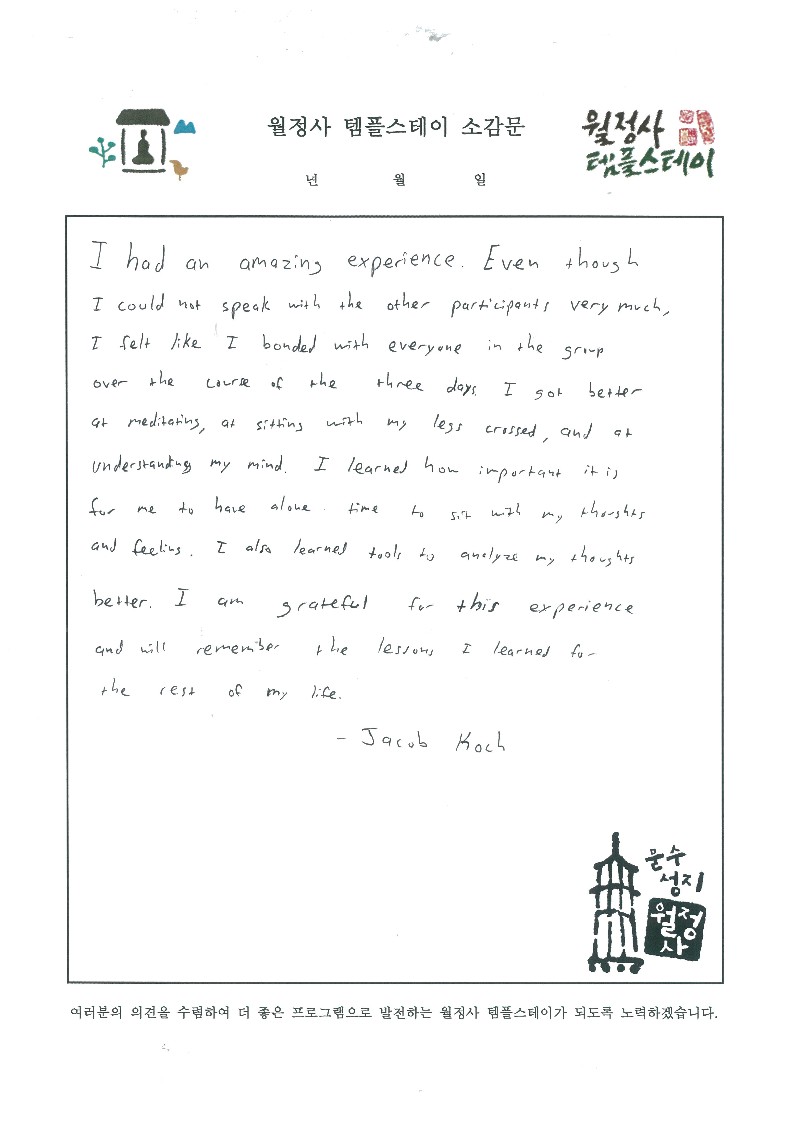 월정사 템플스테이 소감문
월정사
템플스테이
년 월 일
I had an amazing experience. Even though
I could not speak with the other participants very much,
I felt like I bonded with everyone in the group
over the course of the three days. I got better
at meditating, at sitting with my legs crossed, and at
understanding my mind. I learned how important it is
for me to have alone time to sit with my thoughts
and feelings. I also learned tools to analyze my thoughts
better. I am grateful for this experience
and will remember the lessons I learned for
the rest of my life.
- Jacob Koch
문수
성지
월정
사
여러분의 의견을 수렴하여 더 좋은 프로그램으로 발전하는 월정사 템플스테이가 되도록 노력하겠습니다.